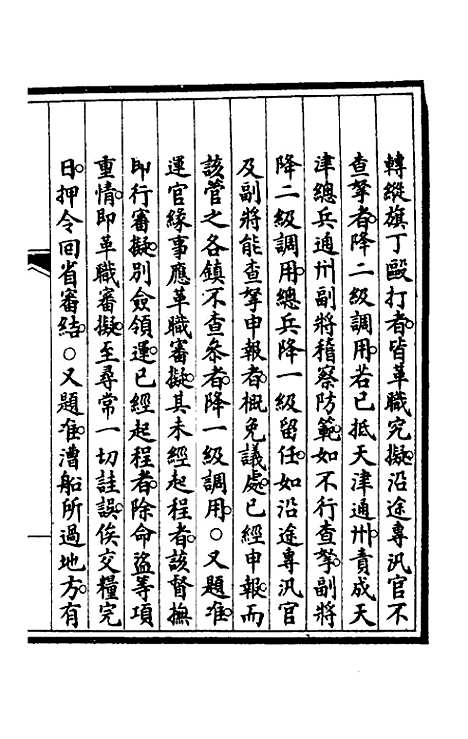 轉縱旗丁毆打者皆革職究擬沿途專汛官不
查拏者降二級調用若已抵天津通州責成天
津總兵通州副將稽察防範如不行查拏副將
降二級調用總兵降一級留任如沿途專汛官
及副將能查拏申報者概免議處已經申報而
該管之各鎮不查叅者降一級調用○又題准
運官緣事應革職審擬其未經起程者該督撫
即行審擬別僉領運已經起程者除命盜等項
重情即革職審擬至尋常一切詿誤俟交糧完
日押令回省審結○又題准漕船所過地方有